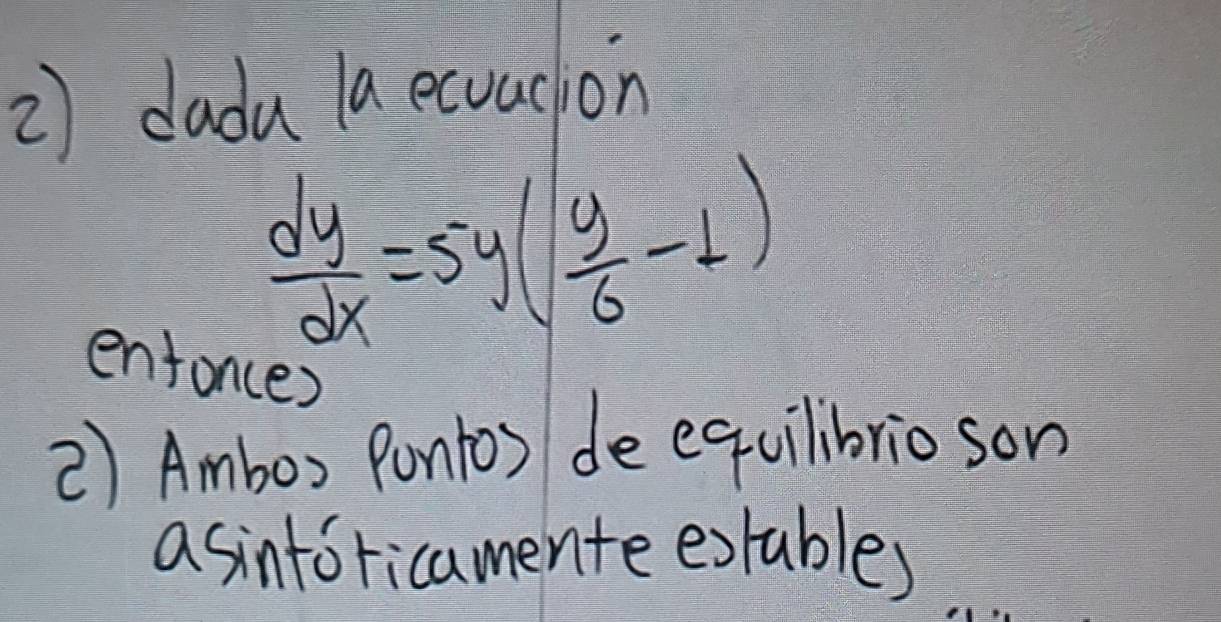 2) dada la ecuación
dy/dx = 5y(y/6 - 1)
entonces
2) Ambos Puntos de equilibrio son
asintóticamente estables